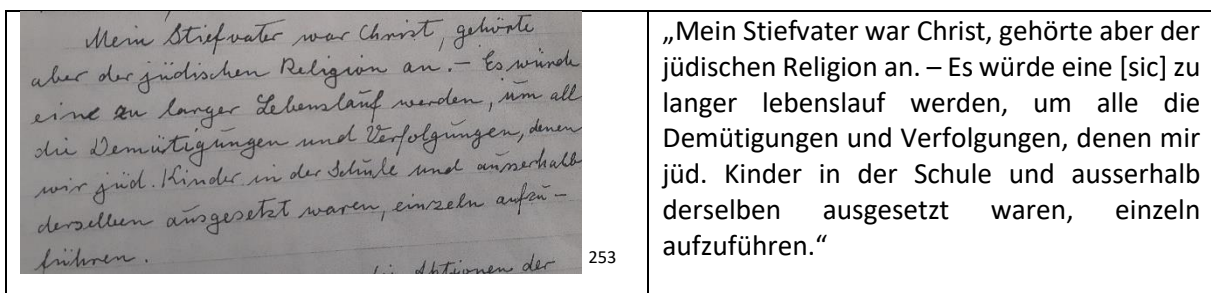 Mein Stiefvater war Christ, gehörte
aber der jüdischen Religion an. – Es würde
eine zu langer Lebenslauf werden, um all
die Demütigungen und Verfolgungen, denen
wir jüd. Kinder in der Schule und ausserhalb
derselben ausgesetzt waren, einzeln aufzu-
führen.
Aktionen der
253
„Mein Stiefvater war Christ, gehörte aber der
jüdischen Religion an. – Es würde eine [sic] zu
langer lebenslauf werden, um alle die
Demütigungen und Verfolgungen, denen mir
jüd. Kinder in der Schule und ausserhalb
derselben ausgesetzt waren, einzeln
aufzuführen.“